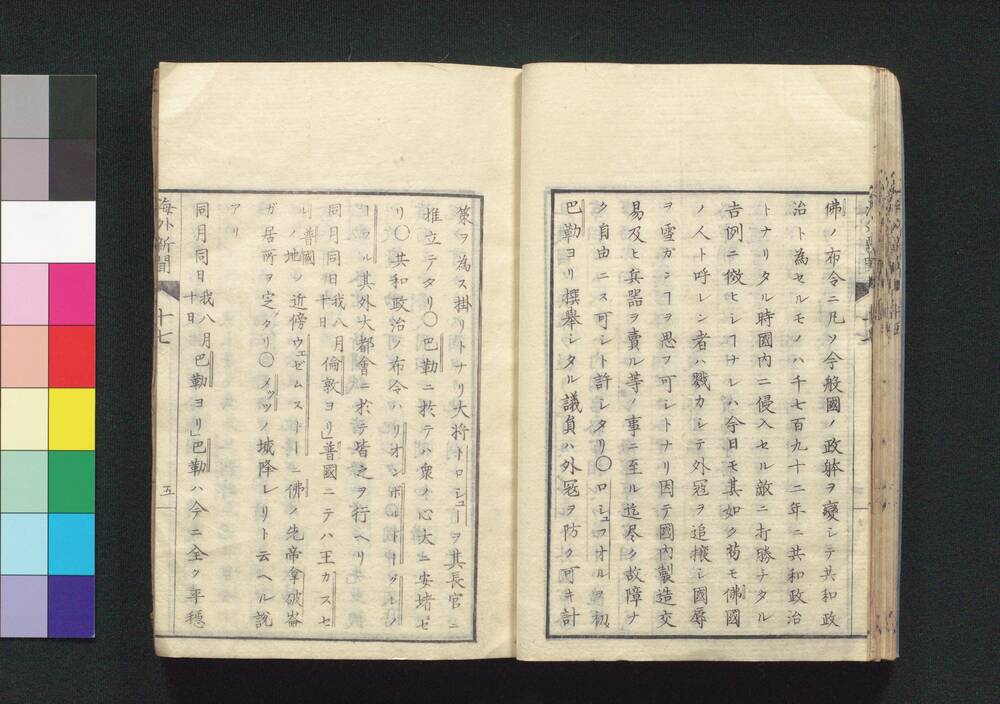 佛ノ布令ニ凡ソ今般國ノ政躰ヲ變シテ共和政
治ト為セルモノハ千七百九十二年ニ共和政治
トナリタル時國内ニ侵入セル敵ニ打勝チタル
吉例ニ傚ヒシヿナレハ今日モ其如ク苟モ佛國
ノ人ト呼レン者ハ戮カシテ外冦ヲ追攘シ國辱
ヲ雪ガンヿヲ思フ可シトナリ因テ國内製造交
易及ヒ兵器ヲ賣ル等ノ事ニ至ル迄尽ク故障ナ
ク自由ニス可シト許シタリ〇ロシュフオルヲ初
巴勒ヨリ撰擧シタル議員ハ外冦ヲ防ク可キ計
策ヲ為ス掛リトナリ大将トロシューヲ其長官ニ
推立テタリ〇巴勒ニ於テハ衆ノ心大ニ安堵セ
リ〇共和政治ノ布令ハリオン
其外大都會ニ於テ皆之ヲ行ヘリ
同月同日我八月十日倫敦ヨリ」普國ニテハ王カスセ
ル普國ノ地ノ近傍ウェゼムストーニ佛ノ先帝拿破崙
ガ居所ヲ定タリ〇メッツノ城降レリト云ヘル說
アリ
同月同日我八月十日巴勒ヨリ」巴勒ハ今ニ全ク平穩
海外新聞
十七
五